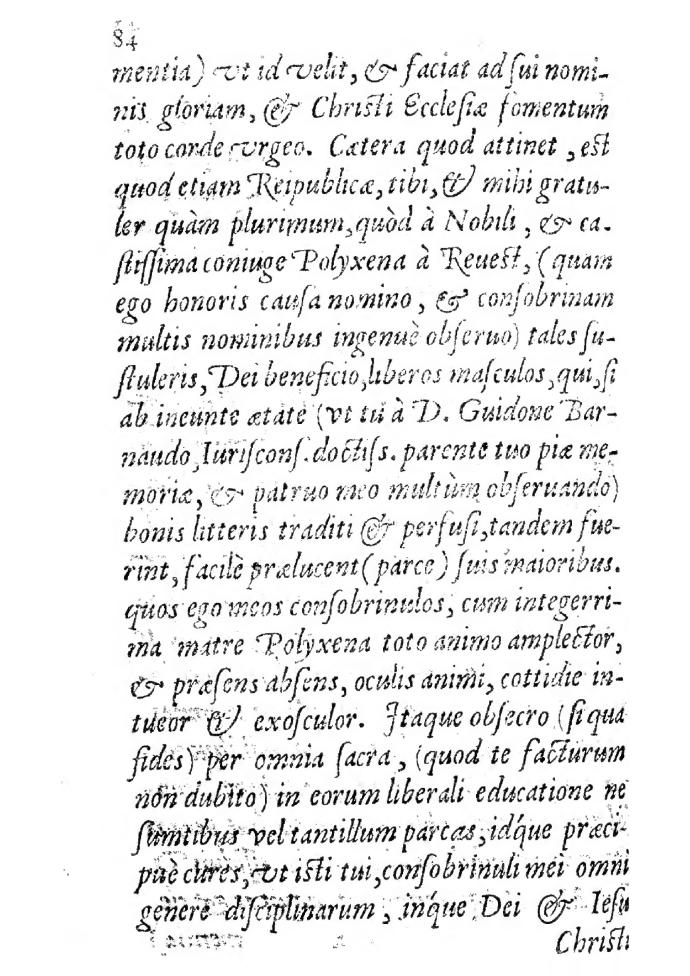 84
mentia) vt id velit, & faciat ad ſui nomi-
nis gloriam, & Chriſti Eccleſiæ fomentum
toto corde vrgeo. Cætera quod attinet, eſt
quod etiam Reipublicæ, tibi, & mihi gratu-
ler quàm plurimum, quòd à Nobili, & ca-
ſtiſſima coniuge Polyxena à Reueſt, (quam
ego honoris cauſa nomino, & conſobrinam
multis nominibus ingenuè obſeruo) tales ſu-
ſtuleris, Dei beneficio, liberos maſculos, qui, ſi
ab ineunte ætate (vt tu à D. Guidone Bar-
naudo Iuriſconſ. doctiſs. parente tuo piæ me-
moriæ, & patruo meo multùm obſeruando)
bonis litteris traditi & perfuſi, tandem fue-
rint, facilè prælucent (parce) ſuis maioribus.
quos ego meos conſobrinulos, cum integerri-
ma matre Polyxena toto animo amplector,
& præſens abſens, oculis animi, cottidie in-
tueor & exoſculor. Itaque obſecro (ſi qua
fides) per omnia ſacra, (quod te facturum
non dubito) in eorum liberali educatione ne
ſumtibus vel tantillum parcas, idq́ue præci-
puè cures, vt iſti tui, conſobrinuli mei omni
genere diſciplinarum, inq́ue Dei & Ieſu
Chriſti